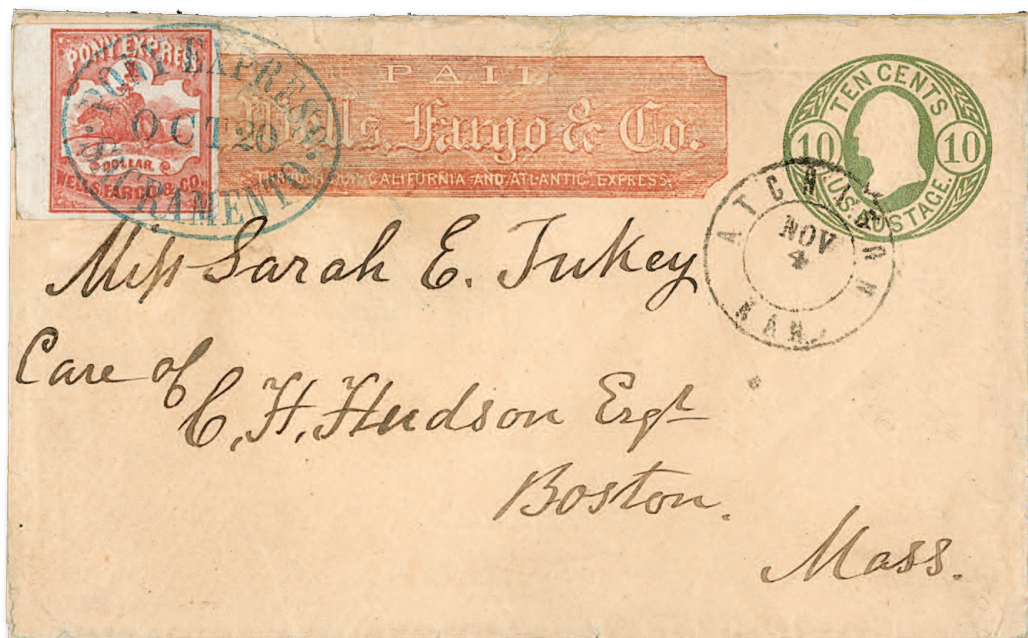 PONY EXPRESS
DOLLAR
WELLS, FARGO & CO.
PONY EXPRESS.
OCT 20
SACRAMENTO.
PAID
Wells, Fargo & Co.
THROUGH OUR CALIFORNIA AND ATLANTIC EXPRESS.
TEN CENTS
10 10
U.S. POSTAGE.
ATCHISON
NOV
4
KAN.
Miss Sarah E. Tukey
Care of
C. H. Hudson Esqr
Boston.
Mass.